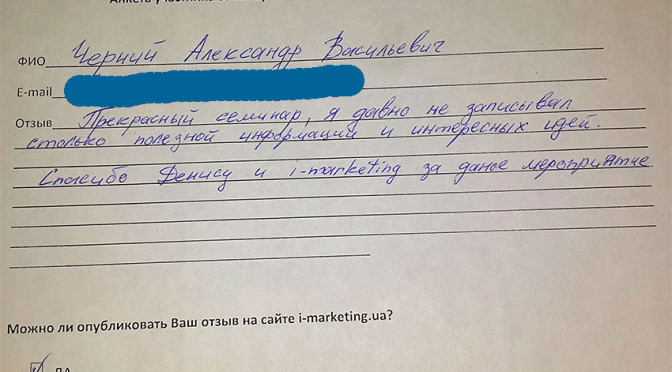 Анкета участника
ФИО Черний Александр Васильевич
E-mail
Отзыв Прекрасный семинар, я давно не записывал
столько полезной информации и интересных идей.
Спасибо Денису и i-marketing за даное мероприятие
Можно ли опубликовать Ваш отзыв на сайте i-marketing.ua?
ДА